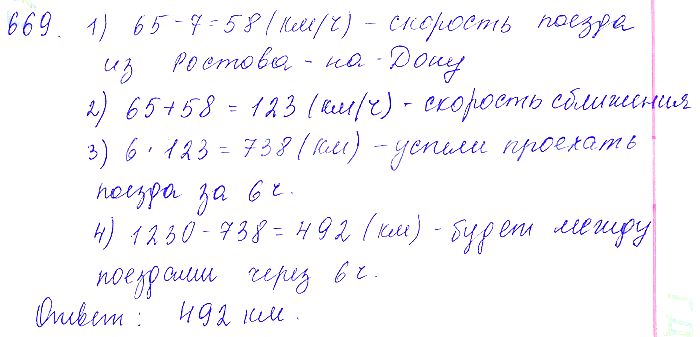 669. 1) 65 - 7 = 58 (км/ч) - скорость поезда
из Ростова - на - Дону
2) 65 + 58 = 123 (км/ч) - скорость сближения
3) 6 · 123 = 738 (км) - успели проехать
поезда за 6 ч.
4) 1230 - 738 = 492 (км) - будет между
поездами через 6 ч.
Ответ: 492 км.